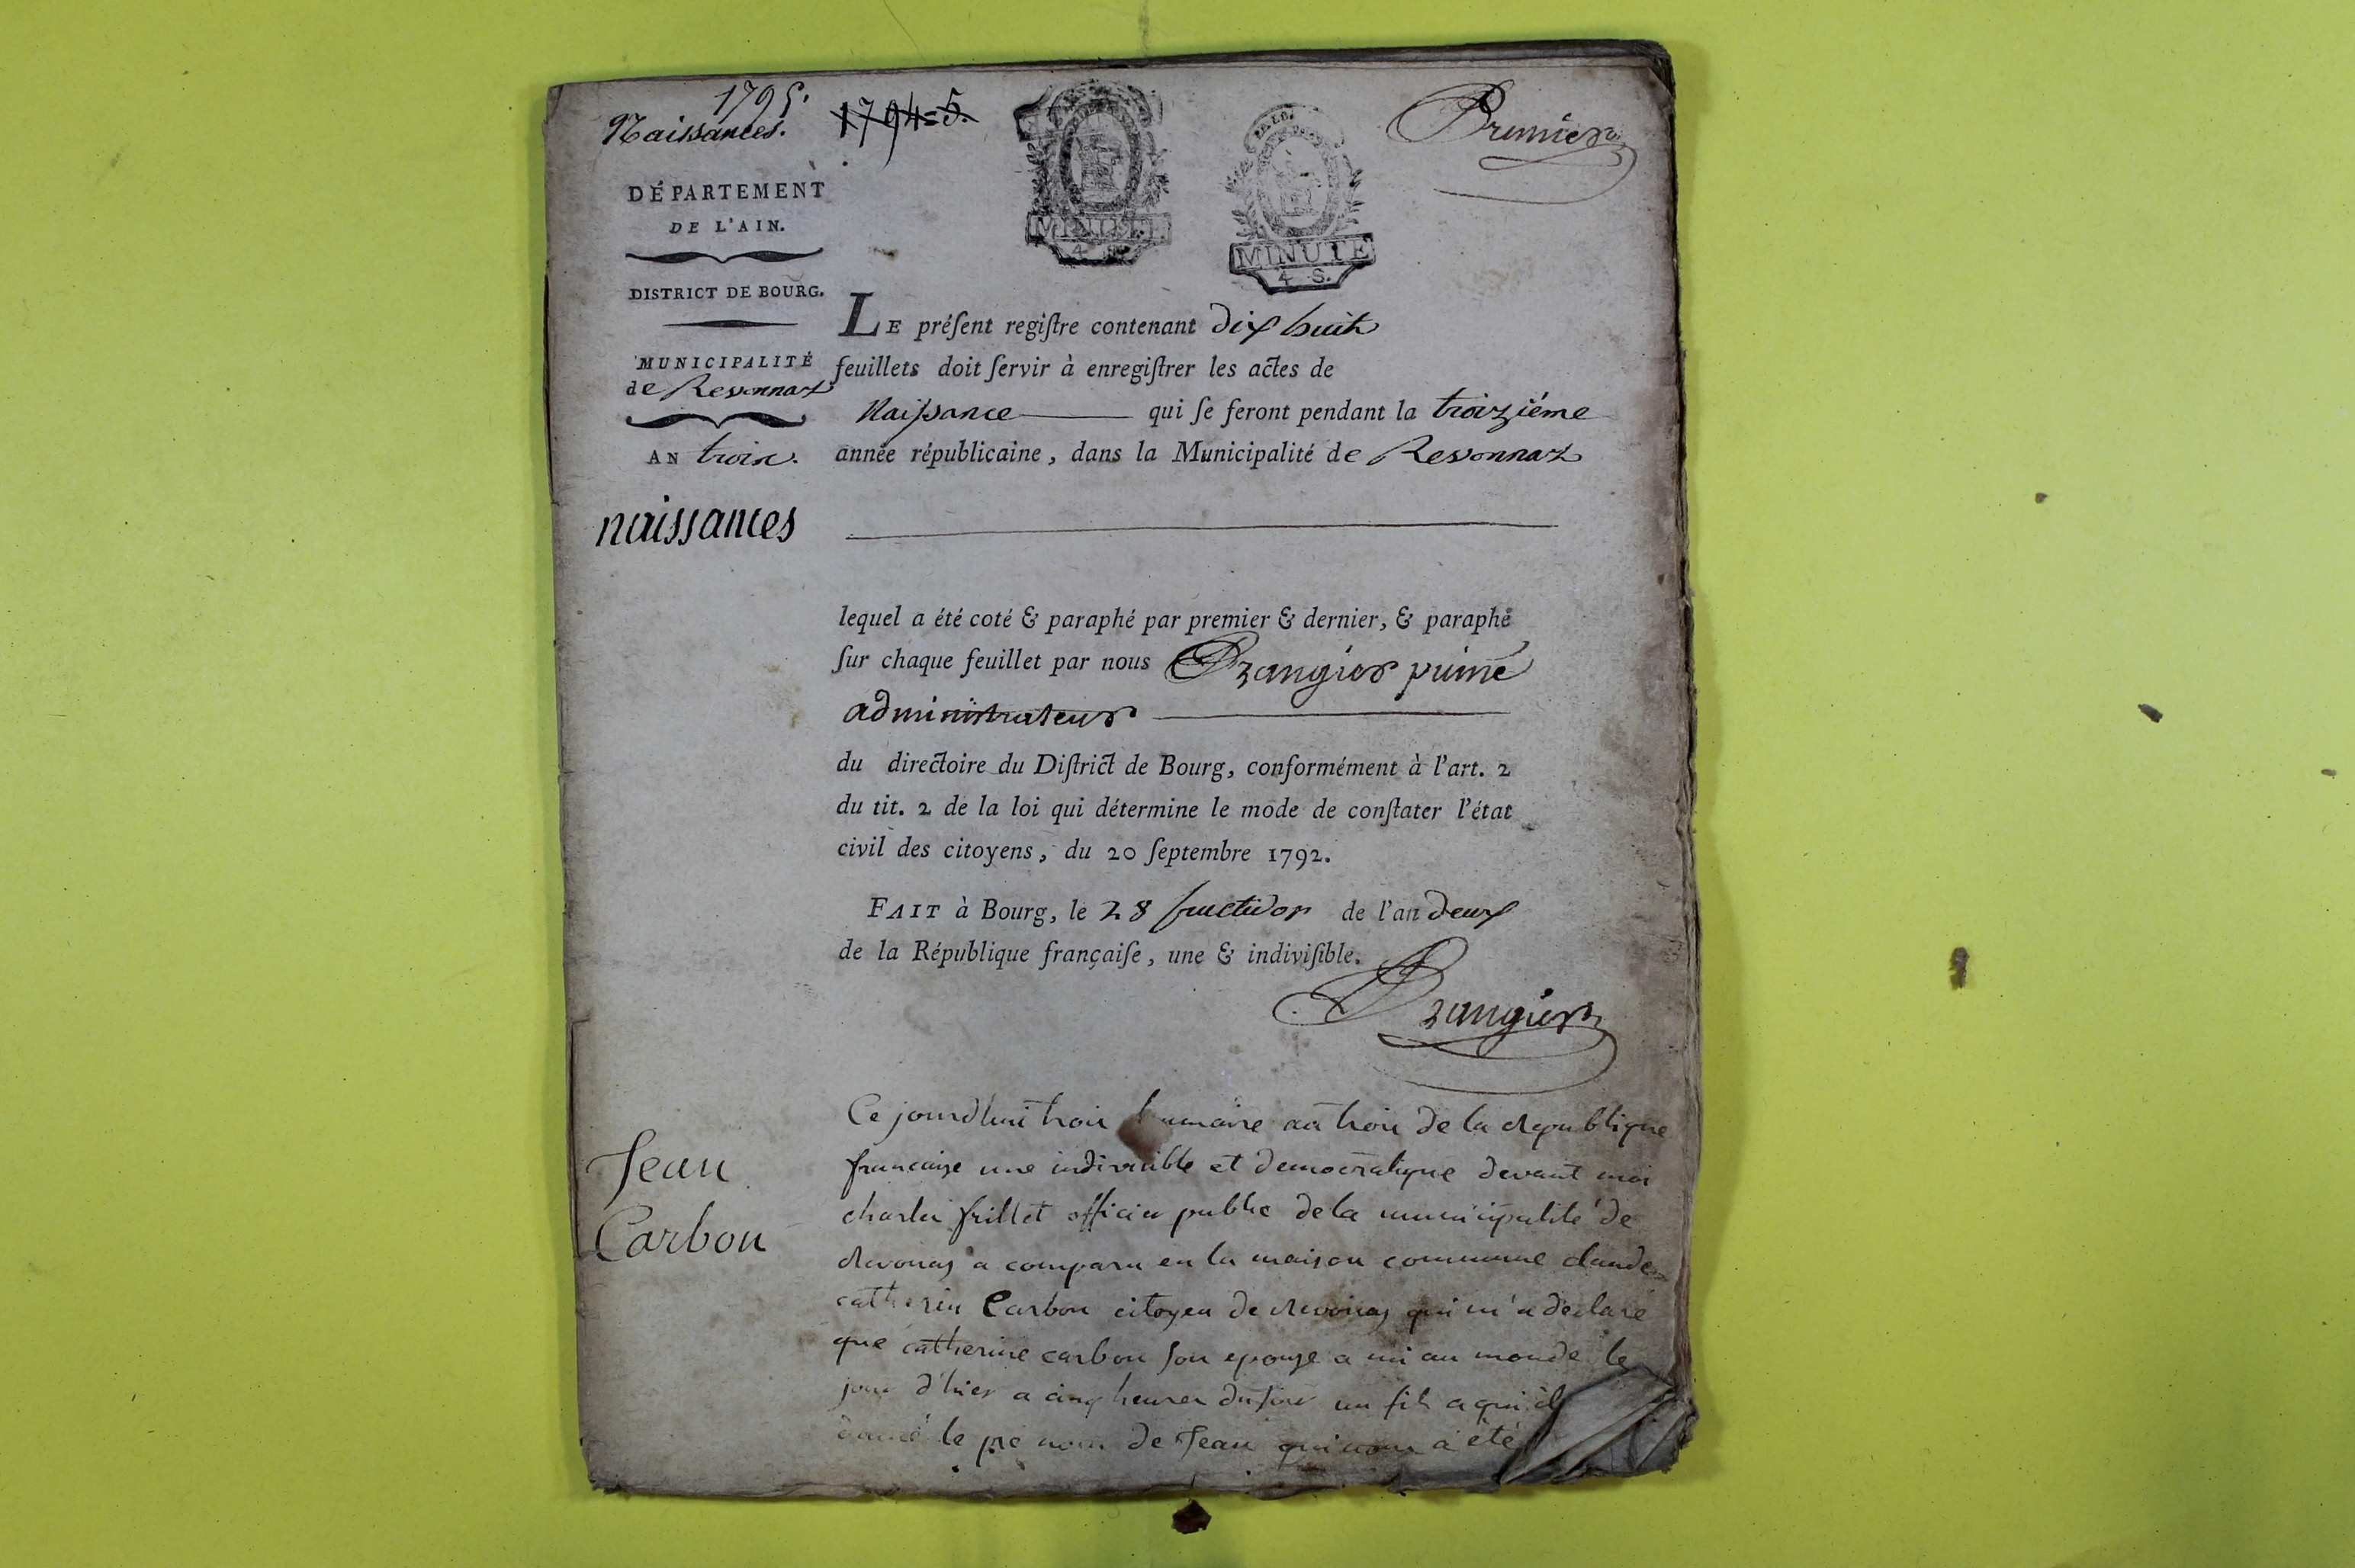 1795.
Naissances.
1794=5.
Premier
MINUTE
4 S.
MINUTE
4 S.
DÉPARTEMENT
DE L'AIN.
DISTRICT DE BOURG.
MUNICIPALITÉ
de Revonnaz
AN trois.
naissances
LE préſent regiſtre contenant dix huit
feuillets doit ſervir à enregiſtrer les actes de
Naissance qui ſe feront pendant la troiziéme
année républicaine, dans la Municipalité de Revonnaz
lequel a été coté & paraphé par premier & dernier, & paraphé
ſur chaque feuillet par nous Brangier puiné
administrateur
du directoire du Diſtrict de Bourg, conformément à l'art. 2
du tit. 2 de la loi qui détermine le mode de conſtater l'état
civil des citoyens, du 20 ſeptembre 1792.
FAIT à Bourg, le 28 fructidor de l'an deux
de la République françaiſe, une & indiviſible.
Brangier
Jean
Carbon
Ce jourdhui trois an trois de la republique
francaise une indivisible et democratique devant moi
charles frillet officier public de la municipalité de
revonas a comparu en la maison commune claude
catherin Carbon citoyen de revonas qui m'a declaré
que catherine carbon son epouse a mi au monde le
jour d'hier a cinq heures du soir un fils a qui il
donné le pre nom de Jean qui nous a été